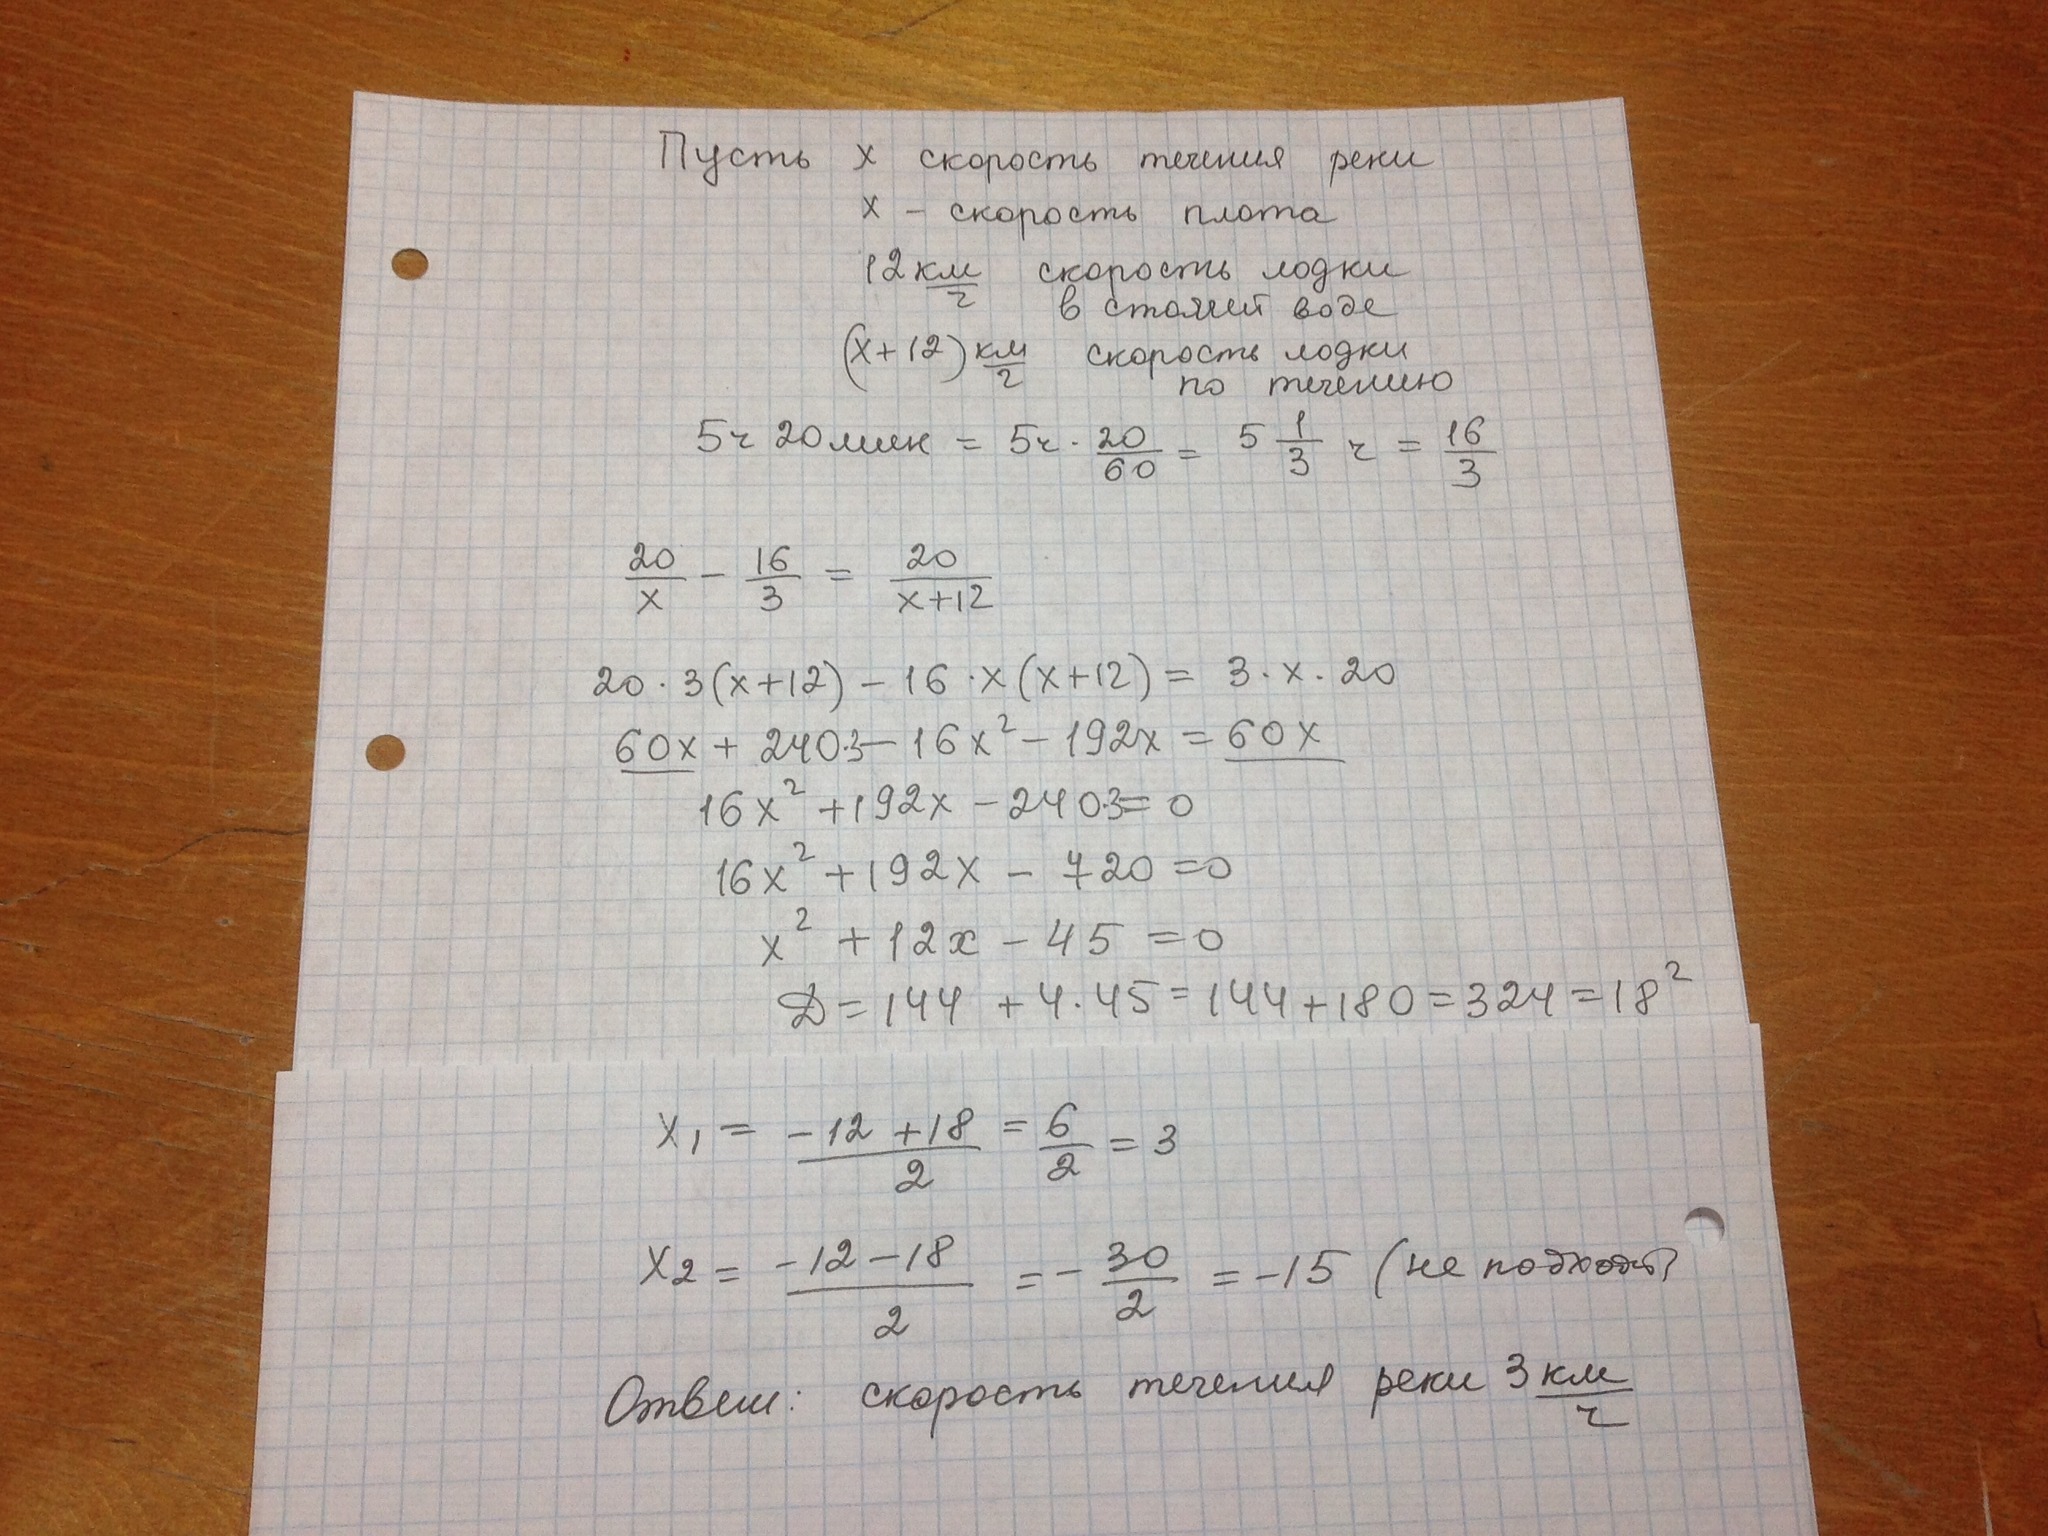 Пусть x скорость течения реки
x - скорость плота
12 км/ч скорость лодки
в стоячей воде
(x+12) км/ч скорость лодки
по течению
5ч 20 мин = 5ч · 20/60 = 5 1/3 ч = 16/3
20/x - 16/3 = 20/(x+12)
20 · 3(x+12) - 16 · x(x+12) = 3 · x · 20
60x + 240·3 - 16x² - 192x = 60x
16x² + 192x - 240·3 = 0
16x² + 192x - 720 = 0
x² + 12x - 45 = 0
D = 144 + 4 · 45 = 144 + 180 = 324 = 18²
x₁ = (-12 + 18)/2 = 6/2 = 3
x₂ = (-12 - 18)/2 = - 30/2 = -15 (не подходит)
Ответ: скорость течения реки 3 км/ч